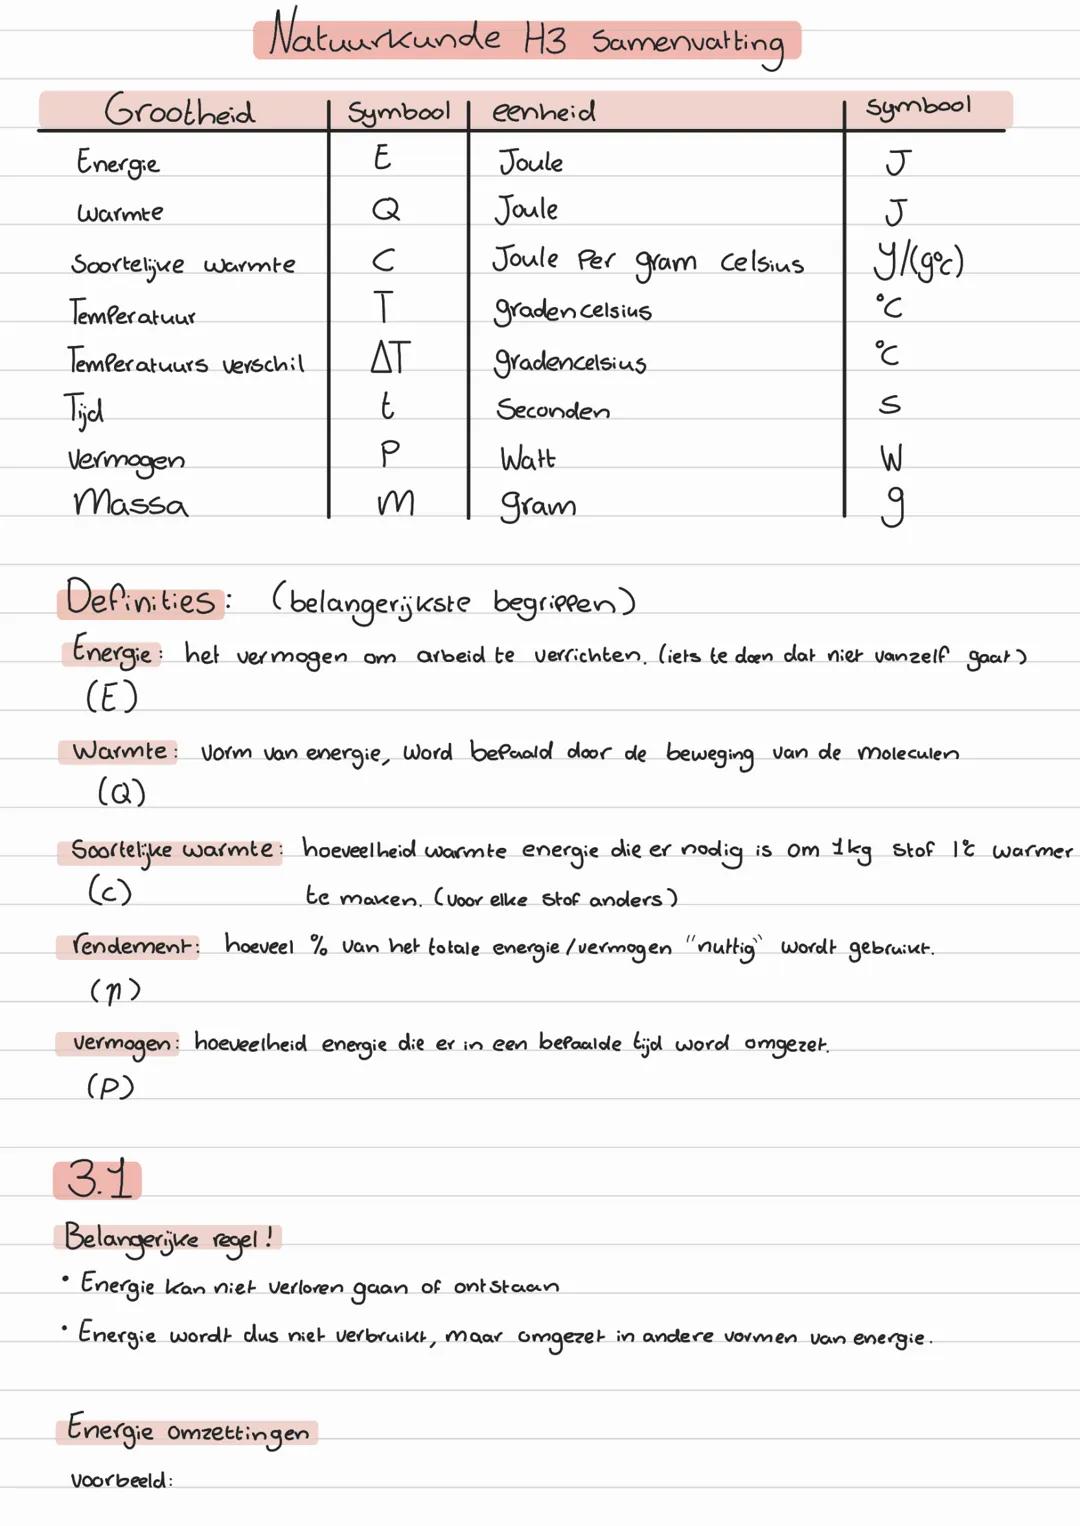 Natuurkunde H3 Samenvatting
Grootheid Symbool eenheid symbool
Energie E Joule J
Warmte Q Joule J
Soortelijke warmte C Joule Per gram Celsius y/(g°c)
Temperatuur T gradencelsius °C
Temperatuurs verschil ΔT gradencelsius °C
Tijd t Seconden s
Vermogen P Watt W
Massa m gram g
Definities: (belangerijkste begrippen)
Energie: het vermogen om arbeid te verrichten. (iets te doen dat niet vanzelf gaat)
(E)
Warmte: vorm van energie, word bepaald door de beweging van de moleculen
(Q)
Soortelijke warmte: hoeveelheid warmte energie die er nodig is om 1kg stof 1°c warmer
(c) te maken. (voor elke stof anders)
rendement: hoeveel % van het totale energie/vermogen "nuttig" wordt gebruikt.
(η)
vermogen: hoeveelheid energie die er in een bepaalde tijd word omgezet.
(P)
3.1
Belangerijke regel!
• Energie kan niet verloren gaan of ontstaan
• Energie wordt dus niet verbruikt, maar omgezet in andere vormen van energie.
Energie omzettingen
voorbeeld: